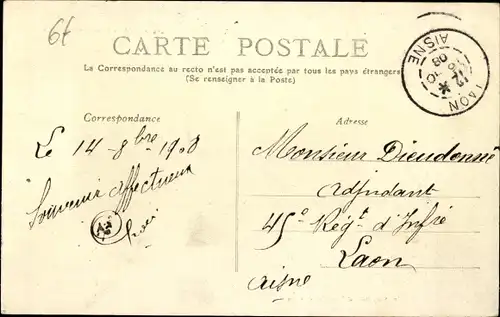 6f
CARTE POSTALE
La Correspondance au recto n'est pas acceptée par tous les pays étrangers
(Se renseigner à la Poste)
LAON
AISNE
08
Correspondance
Le 14 - 8bre 1908
Souvenir affectueux
Adresse
Monsieur Dieudonné
Adjudant
45e Régt d'Infie
Laon
Aisne